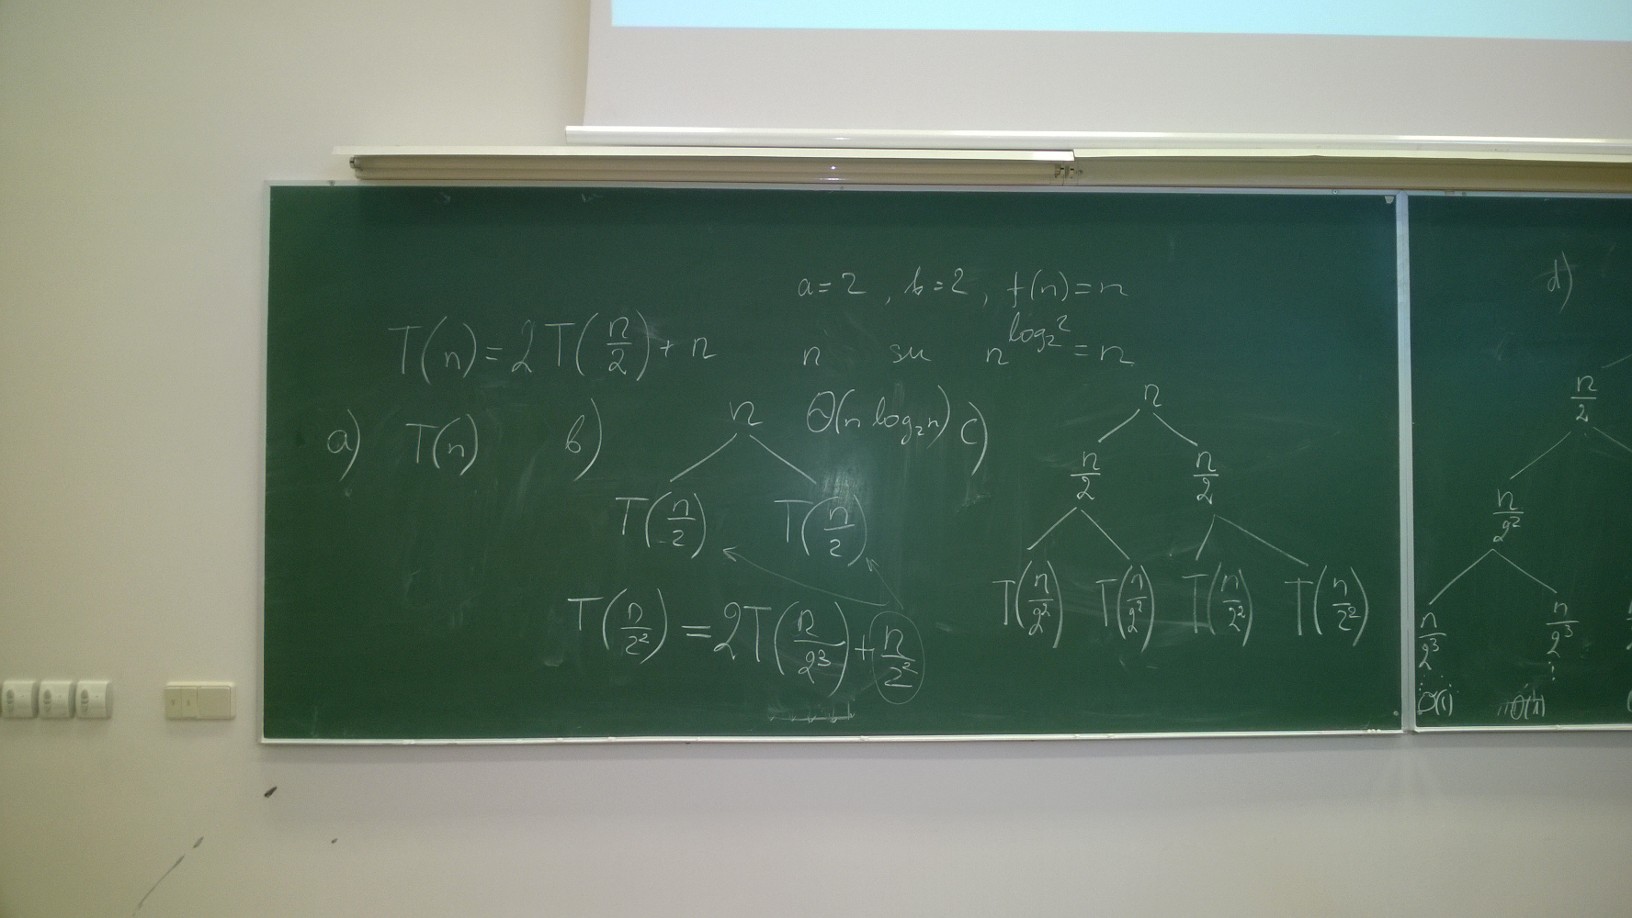 a = 2 , b = 2 , f(n) = n
T(n) = 2T(n/2) + n
n su n^{log_2 2} = n
a) T(n)
b) n
Θ(n log_2 n)
T(n/2) T(n/2)
T(n/2^2) = 2T(n/2^3) + n/2^2
c) n
n/2 n/2
T(n/2^2) T(n/2^2) T(n/2^2) T(n/2^2)
d)
n/2
n/2^2
n/2^3 n/2^3
⋮ ⋮
Θ(1) Θ(1)